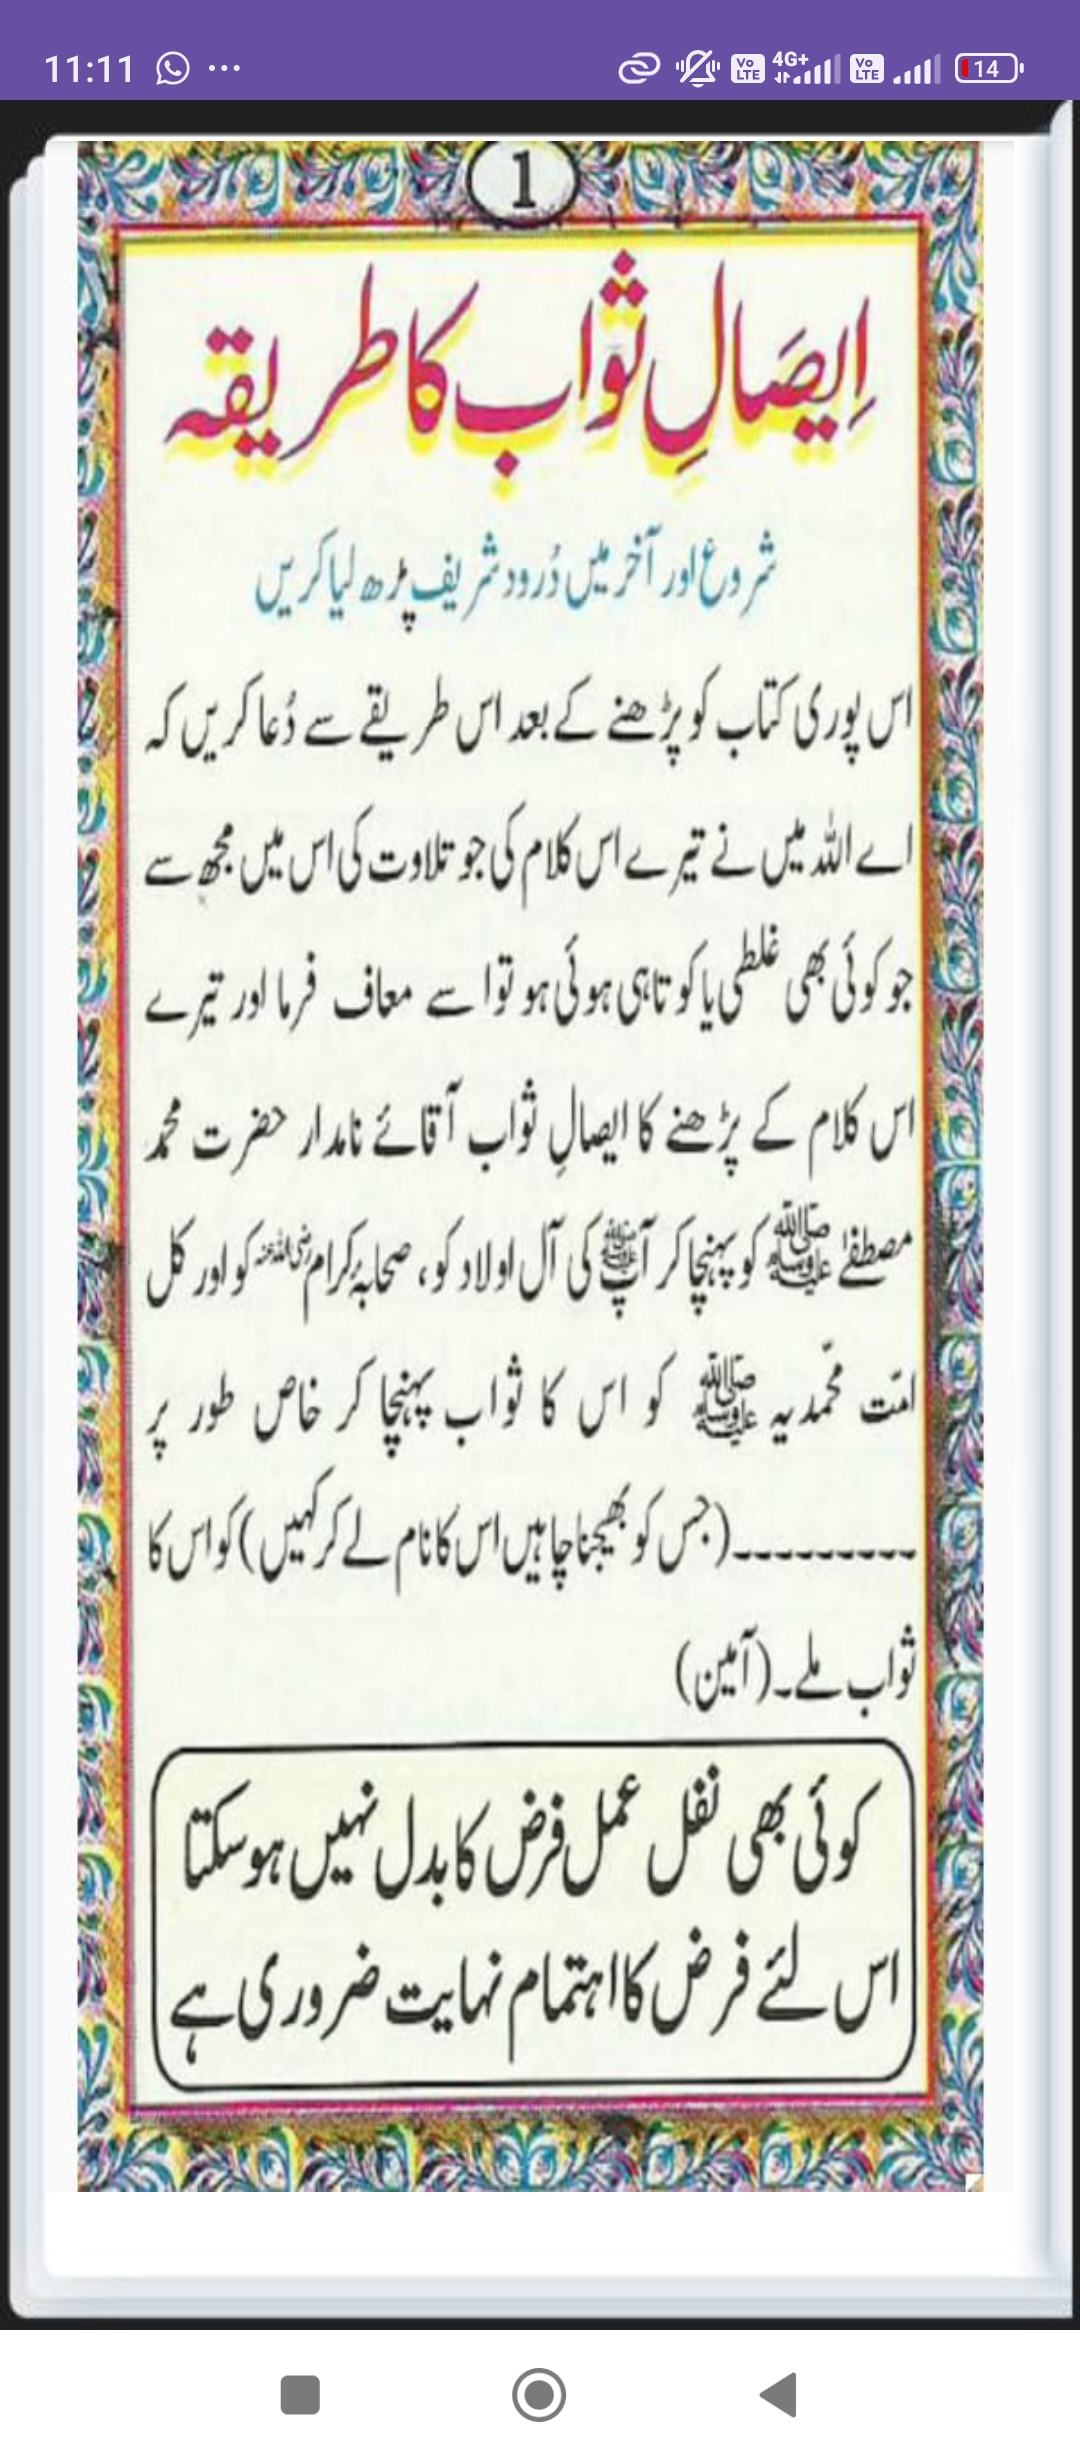 11:11
4G+
Vo LTE
Vo LTE
14
1
اِیصَالِ ثَوَاب کا طریقہ
شروع اور آخر میں دُرود شریف پڑھ لیا کریں
اس پوری کتاب کو پڑھنے کے بعد اس طریقے سے دُعا کریں کہ
اے اللہ میں نے تیرے اس کلام کی جو تلاوت کی اس میں مجھ سے
جو کوئی بھی غلطی یا کوتاہی ہوئی ہو تو اسے معاف فرما اور تیرے
اس کلام کے پڑھنے کا ایصالِ ثواب آقائے نامدار حضرت محمد
مصطفےٰ ﷺ کو پہنچا کر آپ ﷺ کی آل اولاد کو، صحابہ کرام رضی اللہ عنہ کو اور کل
امّت محمّدیہ ﷺ کو اس کا ثواب پہنچا کر خاص طور پر
---------(جس کو بھیجنا چاہیں اس کا نام لے کر کہیں) کو اس کا
ثواب ملے۔ (آمین)
کوئی بھی نفل عمل فرض کا بدل نہیں ہو سکتا
اس لئے فرض کا اہتمام نہایت ضروری ہے